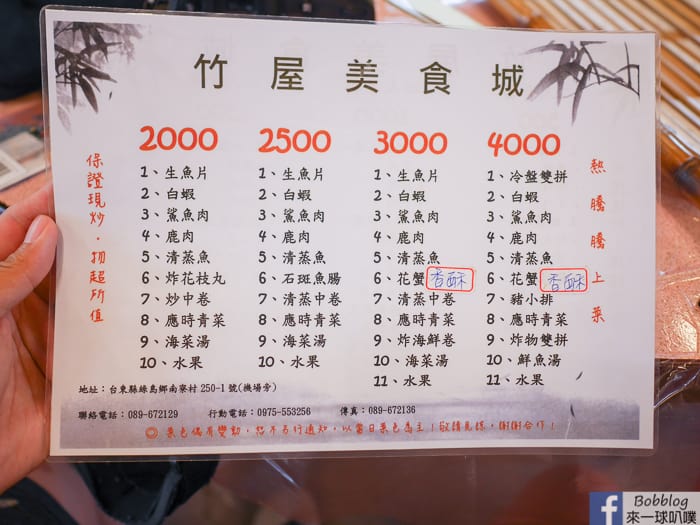 竹屋美食城
保證現炒．物超所值
2000
1、生魚片
2、白蝦
3、鯊魚肉
4、鹿肉
5、清蒸魚
6、炸花枝丸
7、炒中卷
8、應時青菜
9、海菜湯
10、水果
2500
1、生魚片
2、白蝦
3、鯊魚肉
4、鹿肉
5、清蒸魚
6、石斑魚腸
7、清蒸中卷
8、應時青菜
9、海菜湯
10、水果
3000
1、生魚片
2、白蝦
3、鯊魚肉
4、鹿肉
5、清蒸魚
6、花蟹 香酥
7、清蒸中卷
8、應時青菜
9、炸海鮮卷
10、海菜湯
11、水果
4000
1、冷盤雙拼
2、白蝦
3、鯊魚肉
4、鹿肉
5、清蒸魚
6、花蟹 香酥
7、豬小排
8、應時青菜
9、炸物雙拼
10、鮮魚湯
11、水果
熱騰騰上菜
地址：台東縣綠島鄉南寮村 250-1 號(機場旁)
聯絡電話：089-672129 行動電話：0975-553256 傳真：089-672136
◎ 菜色偶有變動，恕不另行通知，以當日菜色為主！敬請見諒，謝謝合作！
Bobblog
來一球叭噗